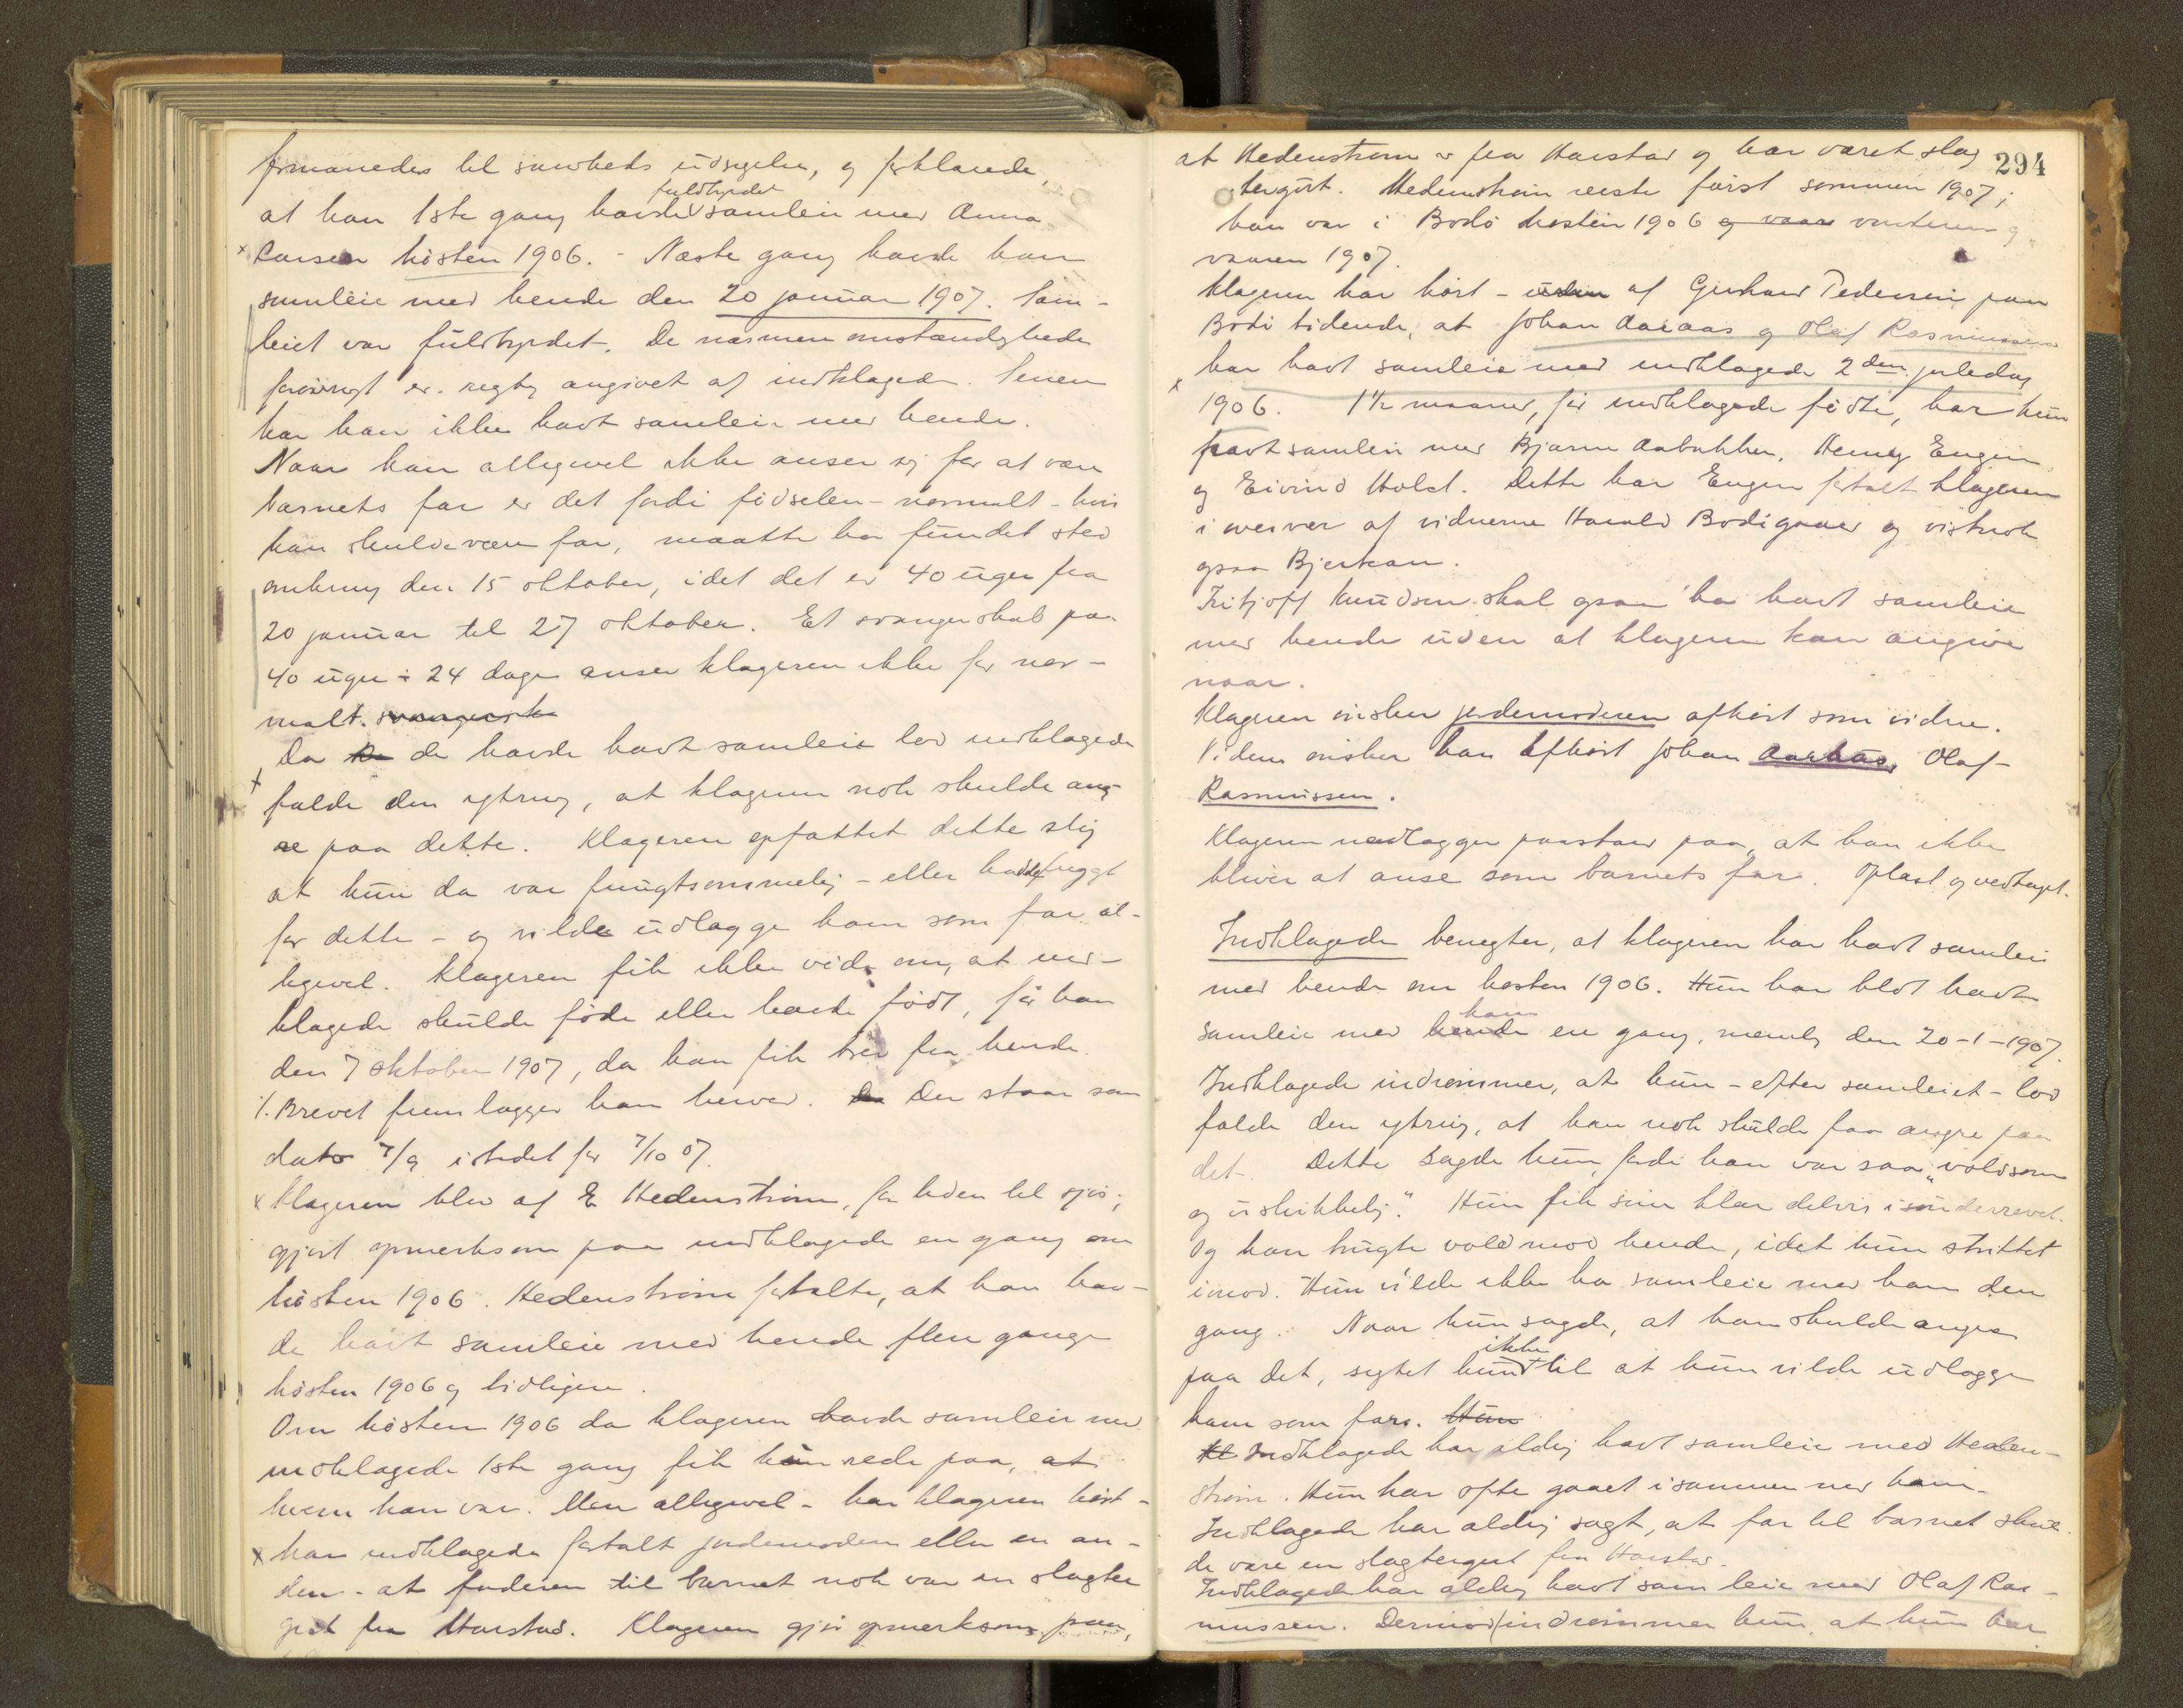 formanedes til sandheds udsigelse, og forklarede,
at han 1ste gang havde fuldbyrdet samleie med Anna
x Larsen høsten 1906. - Næste gang havde han
samleie med hende den 20 januar 1907. Sam-
leiet var fuldbyrdet. De nærmere omstændigheder
forøvrigt er rigtig angivet af indklagede. Senere
har han ikke havt samleie med hende.
Naar han alligevel ikke anser sig for at være
barnets far er det fordi fødselen - normalt - hvis
han skulde være far, maatte ha fundet sted
omkring den 15 oktober, idet det er 40 uger fra
20 januar til 27 oktober. Et svangerskab paa
40 uger ÷ 24 dage anser klageren ikke for nor-
malt. svangersk
Da de havde havt samleie lod indklagede
x falde den ytring, at klageren nok skulde ang-
re paa dette. Klageren opfattet dette slig
at hun da var frugtsommelig - eller havde frygt
for dette - og vilde udlægge ham som far al-
ligevel. Klageren fik ikke vide om, at ind-
klagede skulde føde eller havde født, før han
den 7 oktober 1907, da han fik brev fra hende.
./. Brevet fremlægger han herved. Der staar som
dato 7/9 istedet for 7/10 07.
x Klageren blev af E Hedenstrøm, for tiden til sjøs;
gjort opmerksom paa indklagede en gang om
høsten 1906. Hedenstrøm fortalte, at han hav-
de havt samleie med hende flere gange
høsten 1906 og tidligere.
Om høsten 1906 da klageren havde samleie med
indklagede 1ste gang fik hun rede paa, at
hvem han var. Men alligevel - har klageren hørt -
x har indklagede fortalt jordemoderen eller en an-
den - at faderen til barnet nok var en slagter
gut fra Harstad. Klageren gjør opmerksom paa,
294
at Hedenstrøm er fra Harstad og har været slag
tergut. Hedenstrøm reiste først sommeren 1907;
han var i Bodø høsten 1906 og vaar vinteren og
vaaren 1907.
Klageren har hørt - af Gerhard Pedersen paa
Bodø tidende, at Johan Aaraas og Olaf Rasmussen
har havt samleie med indklagede 2den juledag
x 1906. 1½ maaned, før indklagede fødte, har hun
havt samleie med Bjarne Aabakken, Henry Eugen
og Eivind Holst. Dette har Eugen fortalt klageren
i overvær af vidnerne Harald Bodøgaard og vistnok
ogsaa Bjerkan.
Fritjoff Knudsen skal ogsaa ha havt samleie
med hende uden at klageren kan angive
naar.
Klageren ønsker jordemoderen afhørt som vidne.
Videre ønsker han afhørt Johan Aarhaas, Olaf
Rasmussen.
Klageren nedlægger paastand paa, at han ikke
bliver at anse som barnets far. Oplæst og vedtaget.
Indklagede benegter, at klageren har havt samleie
med hende om høsten 1906. Hun har blot havt
samleie med hende ham en gang, nemlig den 20-1-1907.
Indklagede indrømmer, at hun - efter samleiet - lod
falde den ytring, at han nok skulde faa angre paa
det. Dette sagde hun, fordi han var saa "voldsom
og uskikkelig". Hun fik sine klær delvis isønderrevet.
Og han brugte vold mod hende, idet hun strittet
imod. Hun vilde ikke ha samleie med ham den
gang. Naar hun sagde, at han skulde angre
paa det, sigtet hun ikke til at hun vilde udlægge
ham som far. Hun
Kl Indklagede har aldrig havt samleie med Heden-
strøm. Hun har ofte gaaet isammen med ham.
Indklagede har aldrig sagt, at far til barnet skul-
de være en slagtergut fra Harstad.
Indklagede har aldrig havt samleie med Olaf Ras-
mussen. Derimod indrømmer hun, at hun har